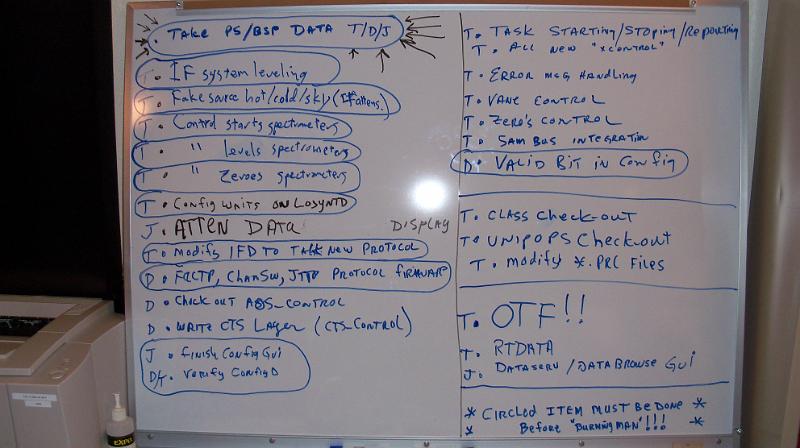 . TAKE PS/BSP DATA T/D/J
T. IF system leveling
T. Fake source hot/cold/sky (IFattens.)
T. Control starts spectrometers
T. " levels spectrometers
T. " Zeroes spectrometers
T. Config waits on LOSYNTD
J. ATTEN DATA DISPLAY
T. Modify IFD to TALK NEW PROTOCOL
D. ChanSW, PROTOCOL firmware
D. Check out AOS_CONTROL
D. WRITE CTS LAYER (CTS_CONTROL)
J. FINISH CONFIG GUI
D/T. Verify CONFIGD
T. TASK STARTING/STOPING/REPORTING
T. ALL NEW "XCONTROL"
T. ERROR MSG HANDLING
T. VANE CONTROL
T. ZERO'S CONTROL
T. SAM BUS INTEGRATIN
D. VALID BIT IN CONFIG
T. CLASS CHECK-OUT
T. UNIPOPS CHECK-OUT
T. MODIFY *.PRC FILES
T. OTF!!
T. RTDATA
J. DATASERV/DATABROWSE GUI
* CIRCLED ITEM MUST BE DONE *
* BEFORE "BURNINGMAN"!!! *